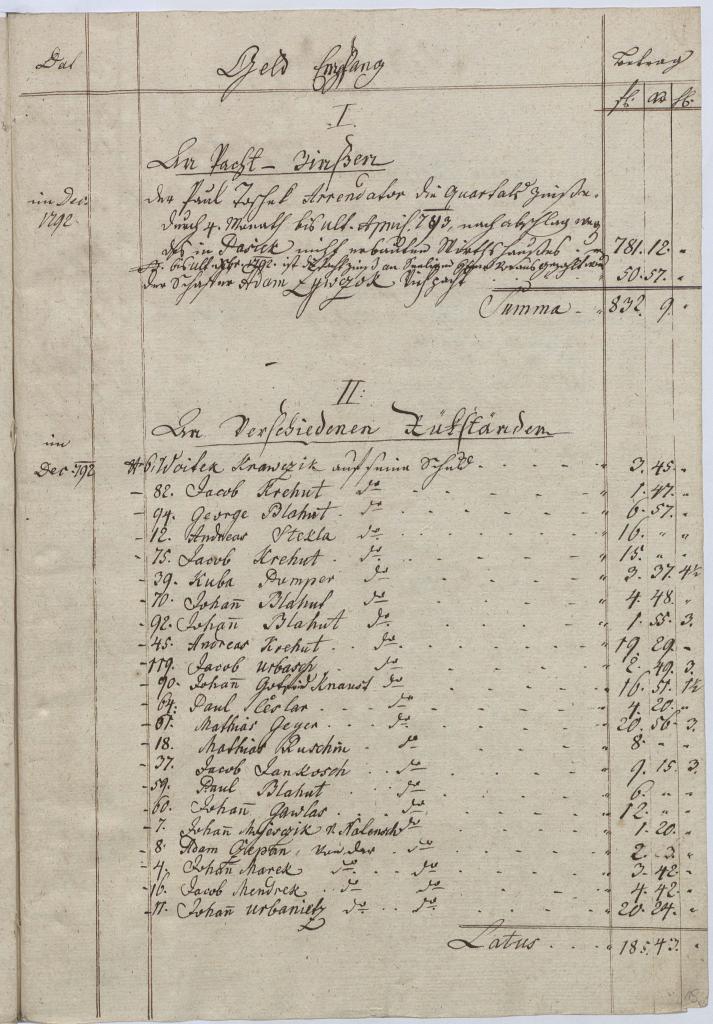 Dat Geld Empfang Betrag
fl: xr ₰:
I.
An Pacht- Zinsen
im Dec: 1792. der Paul Toshek Arrendator die Quartals Zinse
durch 4. Monath bis ult. April 793, nach abschlag
des in Pasiek nicht erbauten Wirthshauses 781. 12. "
bis ult. 1792. ist
der Schaffer Adam Viehpacht 50. 57. "
Summa - " 832. 9. "
II:
An Verschiedenen Rükständen
im Dec: 792 N 6. Woitek Krawczik auf seine Schuld " 3. 45. "
- 82. Jacob Krehut do " 1. 47. "
- 94. George Blahut do " 6. 57. "
- 12. Andreas Stekla do " 16. " "
- 75. Jacob Krehut do " 15. " "
- 39. Kuba Pomper do " 3. 37. 4½
- 70. Johañ Blahut do " 4. 48. "
- 92. Johañ Blahut do " 1. 55. 3.
- 45. Andreas Krehut do " 19. 29. -
- 119. Jacob Urbasch do " 2. 49. 3.
- 90. Johañ Gotfrid Knaust do " 16. 51. 1½
- 64. Paul Cieslar do " 4. 20. "
- 61. Mathias Geyer do " 20. 56. 3.
- 18. Mathias Ruschin do " 8. " "
- 37. Jacob Jankosch do " 9. 15. 3.
- 59. Paul Blahut do " 6. " "
- 60. Johañ Gawlas do " 12. " "
- 7. Johañ do " 1. 20. "
- 8. Adam von der do " 2. 3. "
- 4. Johañ Marek do do " 3. 42. "
- 16. Jacob Mendrek do do " 4. 42. "
- 17. Johañ Urbanietz do do " 20. 24. "
Latus " 185. 43. "